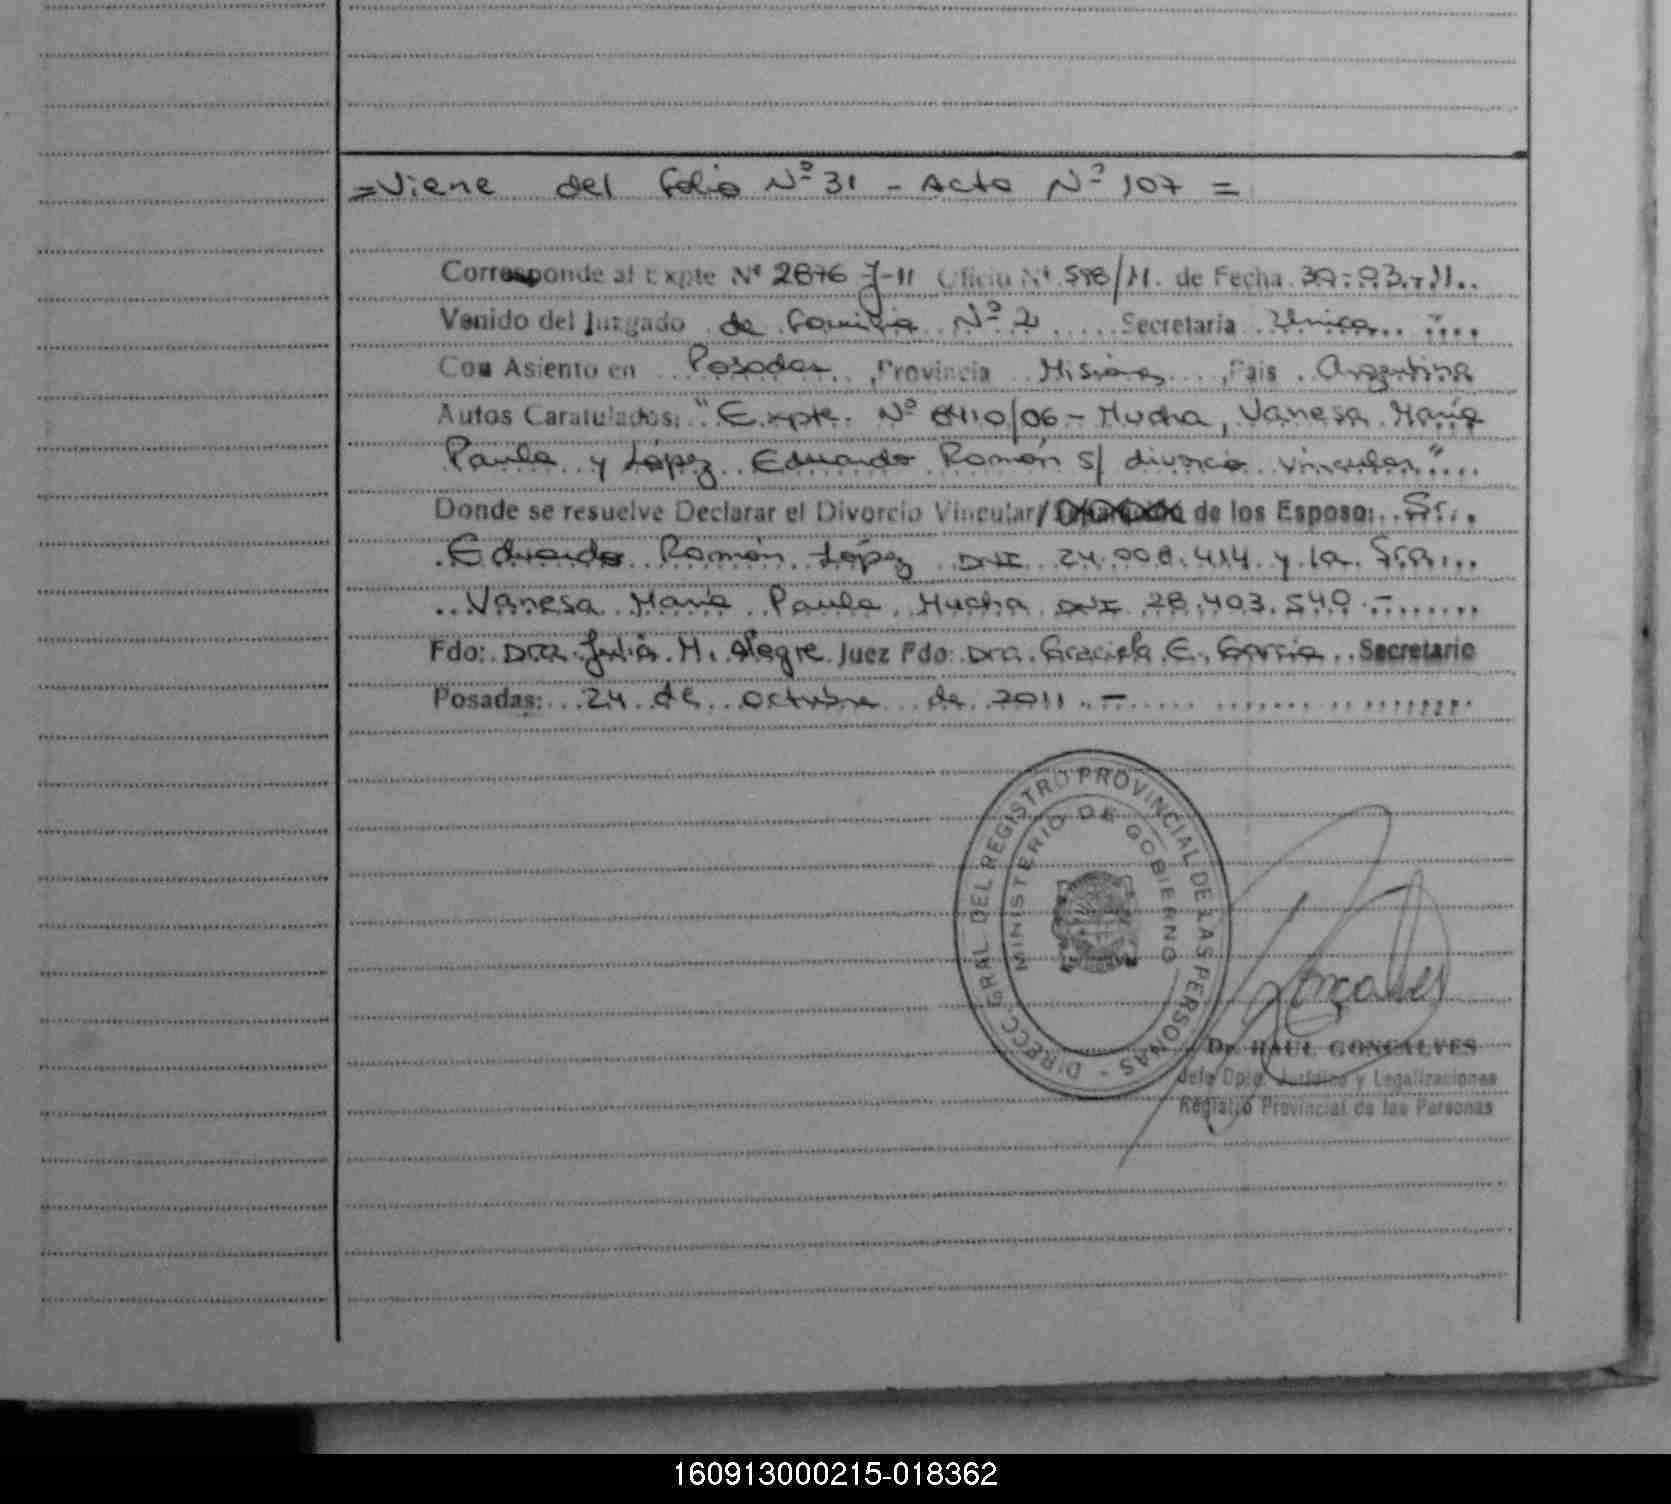 =Viene del folio Nº 31 - Acta Nº 107 =
Corresponde al Expte Nº 2876 J-11 Oficio Nº 598/11. de Fecha 30-03-11..
Venido del Juzgado de Familia Nº 2 Secretaria Unica
Con Asiento en Posadas, Provincia Misiones, Pais Argentina
Autos Caratulados: "Expte. Nº 8410/06 - Mucha, Vanesa María
Paula y López Eduardo Román s/ divorcio vincular"
Donde se resuelve Declarar el Divorcio Vincular/ de los Esposo: Sr.
Eduardo Román López DNI 24.008.414 y la Sra.
Vanesa María Paula Mucha DNI 28.403.540 -
Fdo: Dra. Julia M. Alegre Juez Fdo: Dra. Graciela E. García Secretario
Posadas: 24 de octubre de 2011 -
DIRECC. GRAL DEL REGISTRO PROVINCIAL DE LAS PERSONAS -
MINISTERIO DE GOBIERNO
Gonçalves
Dr. RAUL GONCALVES
Jefe Dpto. Jurídico y Legalizaciones
Registro Provincial de las Personas
160913000215-018362